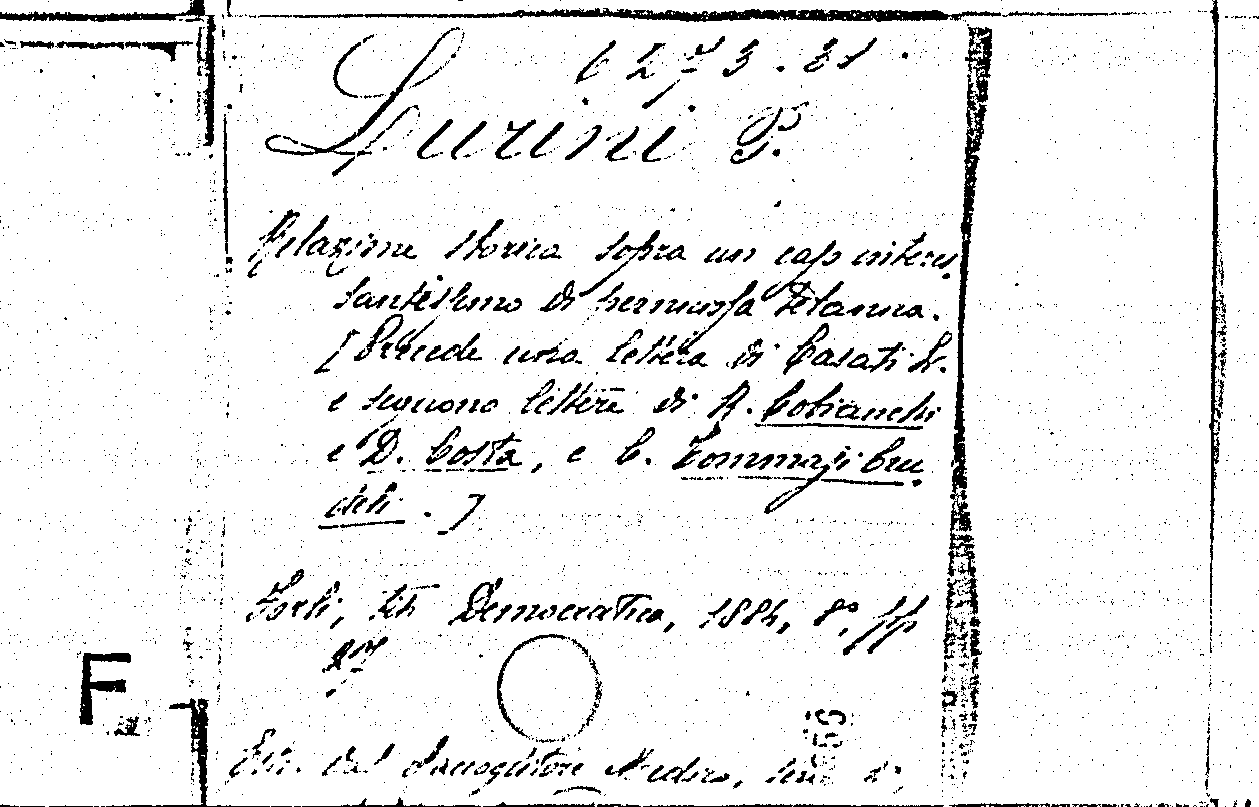 6273.31
Lurini P.
Relazione storica sopra un caso interes
santissimo di permuofa tetanica.
[Precede una lettera di Casati L.
e seguono lettere di R. Cobianchi
e D. Costa, e C. Tommasi Cru
deli.]
Forlì, tip Democratica, 1884, 8°, pp
27
F
Estr. dal Raccoglitore Medico, serie